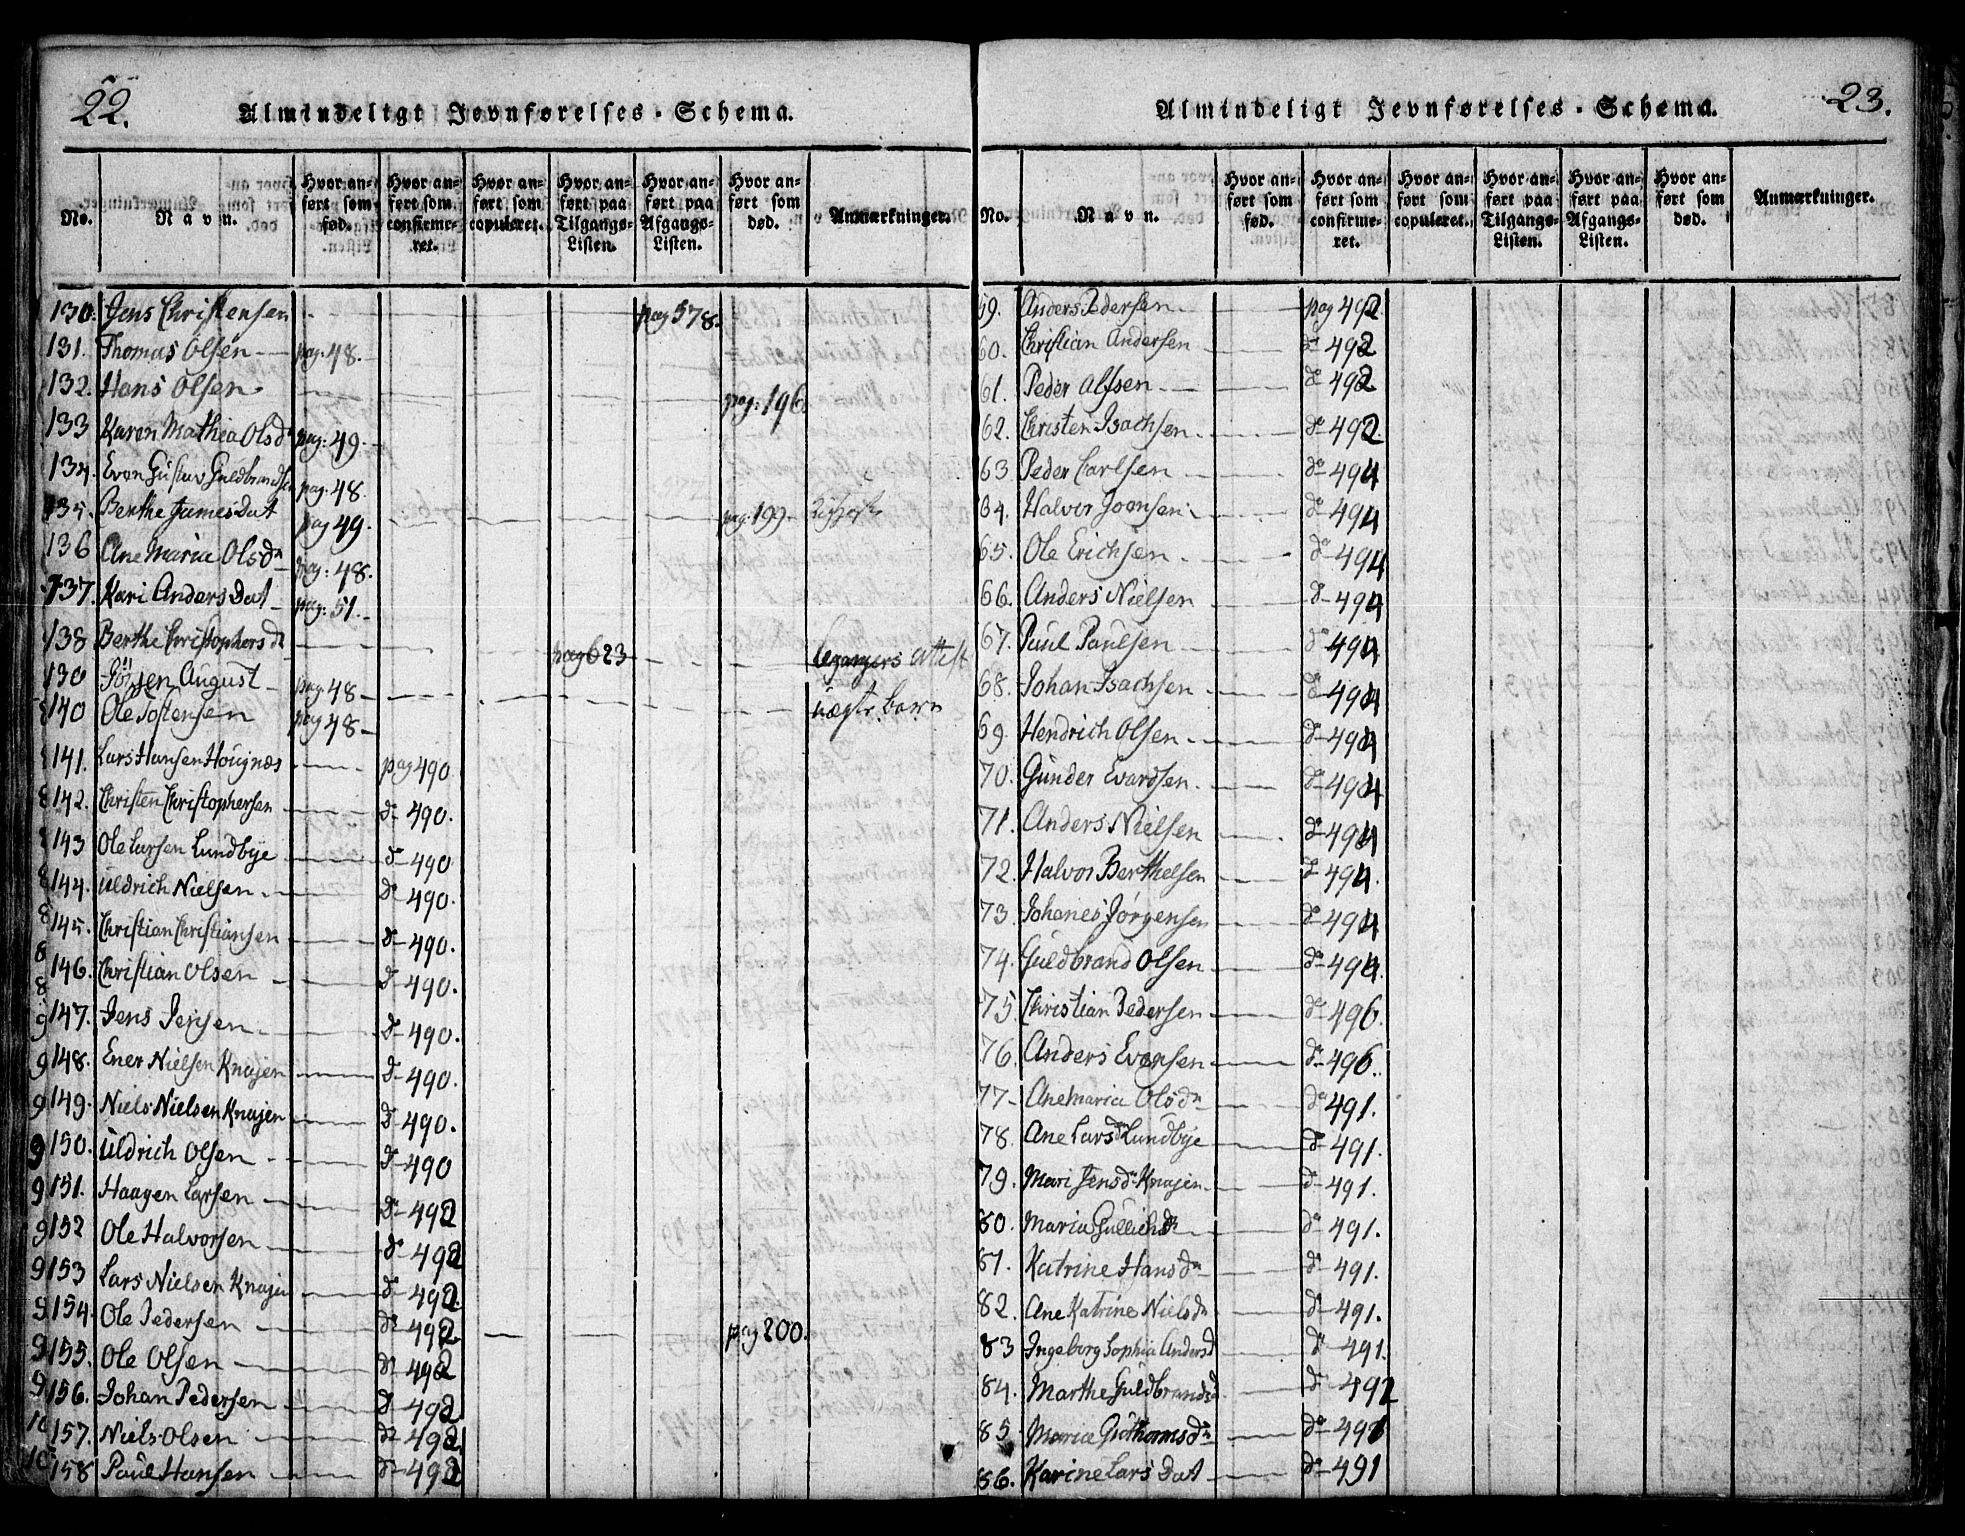 22.
Almindeligt Jevnførelses-Schema.
No. Navn. Hvor anført som fød. Hvor anført som confirmeret. Hvor anført som copuleret. Hvor anført paa Tilgangs-Listen. Hvor anført paa Afgangs-Listen. Hvor anført som død. Anmærkninger.
130. Jens Christensen pag 578.
131. Thomas Olsen pag. 48.
132. Hans Olsen pag: 196
133 Karen Mathea Olsdr pag: 49.
134. Even Gustav Guldbrandsen pag. 48.
135. Berthe Jamesdat pag 49. pag. 199
136 Ane Maria Olsdr pag: 48.
137. Kari Anders Dat pag: 51.
138 Berthe Christophersdr pag 623 attest
139 Jörgen August pag 48 uægte barn
140 Ole Tostensen pag 48
141. Lars Hansen Hougnæs pag 490
142. Christen Christophersen do 490.
143 Ole Larsen Lundbye do 490
144. Uldrich Nielsen do 490.
145. Christian Christiansen do 490.
146. Christian Olsen do 490.
147. Jens Jensen do 490.
148. Ener Nielsen Knajen do 490.
149. Niels Nielsen Knajen do 490.
150. Uldrich Olsen do 490
151. Haagen Larsen do 492
152 Ole Halvorsen do 492
153 Lars Nielsen Knajen do 492.
154. Ole Pedersen do 492 pag 200.
155. Ole Olsen do 492
156. Johan Pedersen do 492
157. Niels Olsen do 492
158 Paul Hansen do 492
23.
Almindeligt Jevnførelses-Schema.
No. Navn. Hvor anført som fød. Hvor anført som confirmeret. Hvor anført som copuleret. Hvor anført paa Tilgangs-Listen. Hvor anført paa Afgangs-Listen. Hvor anført som død. Anmærkninger.
59. Anders Pedersen pag 492
60. Christian Andersen do 492
61. Peder Alfsen do 492
62. Christen Isachsen do 492.
63 Peder Carlsen do 494
64. Halvor Joensen do 494
65. Ole Erichsen do 494
66. Anders Nielsen do 494
67. Paul Paulsen do 494
68. Johan Isachsen do 494
69 Hendrich Olsen do 494
70. Gunder Evardsen do 494
71. Anders Nielsen do 494
72. Halvor Berthelsen do 494.
73 Johanes Jörgensen do 494
74. Guldbrand Olsen do 494.
75 Christian Pedersen do 496.
76. Anders Evensen do 496.
77 Anemaria Olsdr do 491.
78. Ane Larsdr Lundbye do 491.
79. Mari Jensdr Knajen do 491.
80. Maria Gullichsdr do 491.
81. Katrine Hansdr do 491.
82. Ane Katrine Nielsdr do 491.
83 Ingeborg Sophia Andersd do 491.
84. Marthe Guldbrandsd do 492
85. Maria Guthormsdr do 491
86. Karine Lars Dat do 491